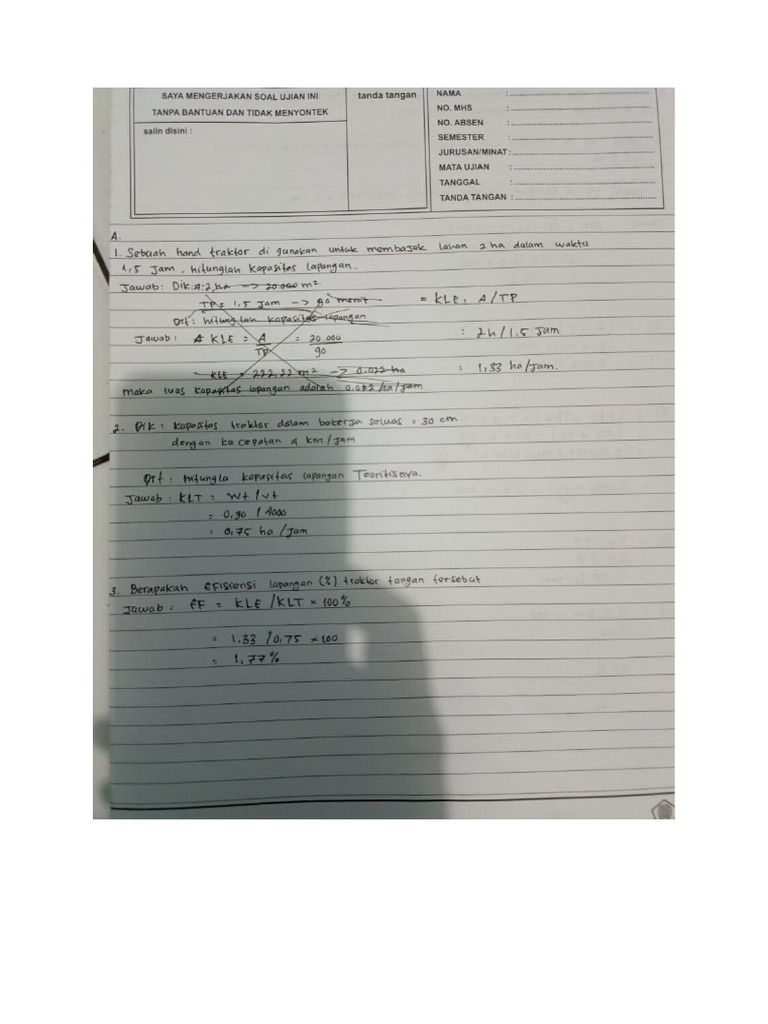 SAYA MENGERJAKAN SOAL UJIAN INI
TANPA BANTUAN DAN TIDAK MENYONTEK
salin disini :
tanda tangan
NAMA :
NO. MHS :
NO. ABSEN :
SEMESTER :
JURUSAN/MINAT :
MATA UJIAN :
TANGGAL :
TANDA TANGAN :
A.
1. Sebuah hand traktor di gunakan untuk membajak lahan 2 ha dalam waktu
1,5 Jam, hitunglah kapasitas lapangan.
Jawab: Dik: A: 2 ha -> 20.000 m²
TP= 1.5 Jam -> 90 menit
Dit: hitunglah kapasitas lapangan
Jawab: KLE = A/TP = 20.000/90
KLE = 222,22 m² -> 0.022 ha
maka luas kapasitas lapangan adalah 0.022 ha/jam
= KLE: A/TP
: 2h/1.5 Jam
: 1,33 ha/Jam.
2. Dik : kapasitas traktor dalam bekerja seluas = 30 cm
dengan kecepatan 4 km/Jam
Dit : hitungla kapasitas lapangan Teoritisnya.
Jawab : KLT = wt/vt
= 0,30 / 4000
= 0,75 ha/Jam
3. Berapakah efisiensi lapangan (%) traktor tangan tersebut
Jawab : eF = KLE/KLT × 100%
= 1.33 / 0,75 × 100
= 1.77%